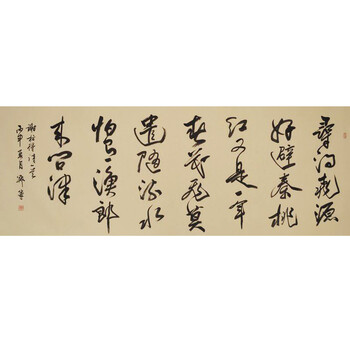 尋得桃源
好避秦桃
红又是一年
春花飛莫
遣随流水
怕有漁郎
来问津
谢枋得诗一首
丙申夏月